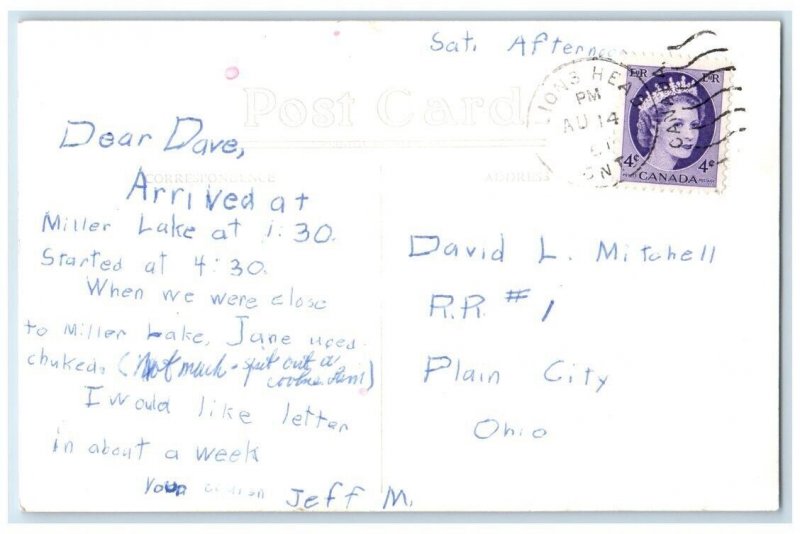 Sat. Afternoon
Post Card
LIONS HEAD
PM
AU 14
E R E R
4¢ 4¢
CANADA
CORRESPONDENCE
ADDRESS
Dear Dave,
Arrived at
Miller Lake at 1:30.
Started at 4:30.
When we were close
to Miller Lake, Jane
chuked. (Not much - spit out a
)
I would like letter
in about a week
Your Jeff M.
David L. Mitchell
R.R. #1
Plain City
Ohio